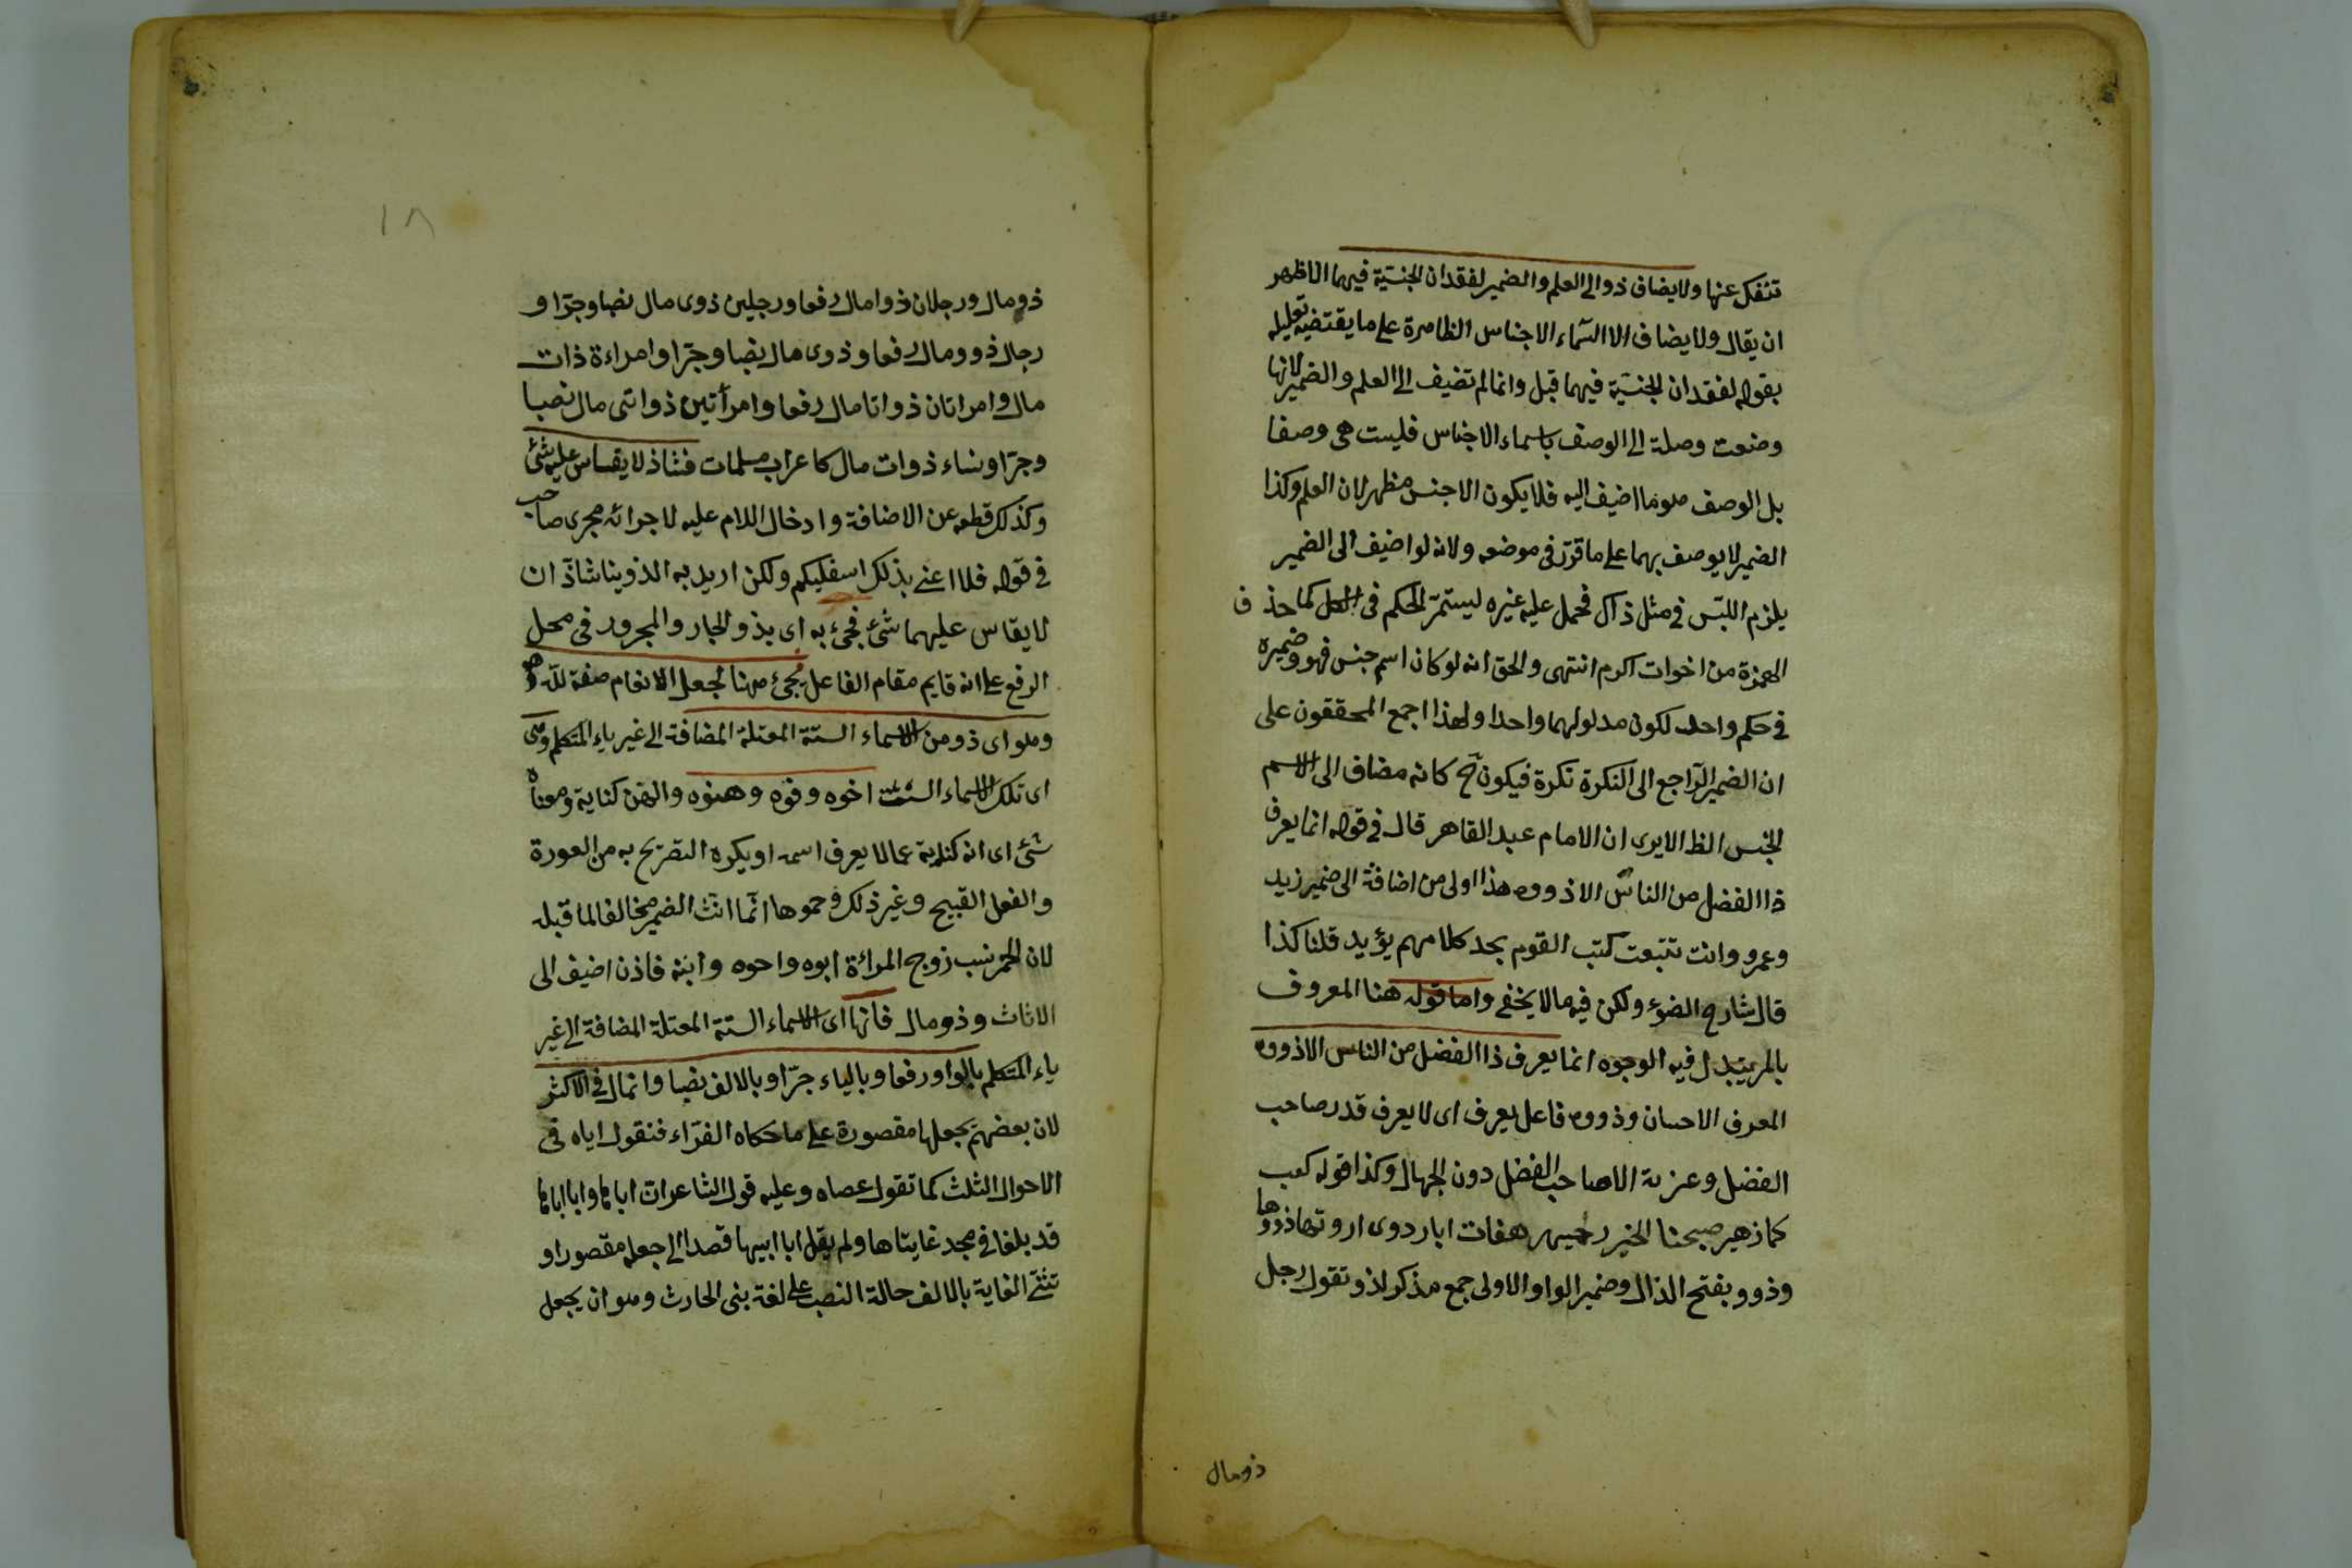 تنفك عنها ولا يضاف ذو الى العلم والضمير لفقدان الجنسية فيهما الاظهر
ان يقال ولا يضاف الا اسماء الاجناس الظاهرة على ما يقتضيه تعليله
بقوله لفقدان الجنسية فيهما قيل وانما لم تضيف الى العلم والضمير لانها
وضعت وصلة الى الوصف باسماء الاجناس فليست هى وصفا
بل الوصف هو ما اضيف اليه فلا يكون الا جنس مظهر لان العلم وكذا
الضمير لا يوصف بهما على ما قرر فى موضعه ولانه لو اضيف الى الضمير
يلزم اللبس فى مثل ذاك فحمل عليه غيره ليستمر الحكم فى الكل كما حذف
الهمزة من اخوات اكرم انتهى والحق انه لو كان اسم جنس فهو وضميره
فى حكم واحد لكون مدلولهما واحدا ولهذا اجمع المحققون على
ان الضمير الراجع الى النكرة نكرة فيكون ح كانه مضاف الى الاسم
الجنس الظ الا يرى ان الامام عبد القاهر قال فى قوله انما يعرف
ذا الفضل من الناس الا ذووه هذا اولى من اضافة الى ضمير زيد
وعمرو وانت تتبعت كتب القوم تجد كلامهم يؤيد قلنا كذا
قال شارح الضوء ولكن فيه ما لا يخفى واما قوله هنا المعروف
بالمر يتبدل فيه الوجوه انما يعرف ذا الفضل من الناس الا ذووه
المعرف الاحسان وذووه فاعل يعرف اى لا يعرف قدر صاحب
الفضل وعزته الا صاحب الفضل دون الجهال وكذا قوله كعب
كما زهير صبحنا الخزرجية مرهفات ابار ذوى ارومتها ذووها
وذوو بفتح الذال وضمير الواو الاولى جمع مذكر لذو وتقول رجل
ذو مال
١٨
ذو مال ورجلان ذوا مال رفعا ورجلين ذوى مال نصبا وجرا و
رجال ذوو مال رفعا وذوى مال نصبا وجرا وامراءة ذات
مال وامراتان ذواتا مال رفعا وامرأتين ذواتى مال نصبا
وجرا ونساء ذوات مال كاعراب مسلمات فشاذ لا يقاس عليه شئ
وكذلك قطعه عن الاضافة وادخال اللام عليه لاجرائه مجرى صاحب
فى قوله فلا اعنى بذلك اسفليكم ولكن اريد به الذوينا شاذ ان
لا يقاس عليهما شئ فجئ به اى بذو الجار والمجرور فى محل
الرفع على انه قايم مقام الفاعل يجئ ههنا لجعل الانعام صفة لله
وهو اى ذو من الاسماء الستة المعتلة المضافة الى غير ياء المتكلم وهى
اى تلك الاسماء الستة اخوه وفوه وهنوه والهن كناية ومعناه
شئ اى انه كناية عما لا يعرف اسمه او يكره التصريح به من العورة
والفعل القبيح وغير ذلك وحموها انما انث الضمير مخالفا لما قبله
لان الحم نسب زوج المرائة ابوه واخوه وابنه فاذن اضيف الى
الاناث وذو مال فانها اى الاسماء الستة المعتلة المضافة الى غير
ياء المتكلم بالواو رفعا وبالياء جرا وبالالف نصبا وانما قال فى الاكثر
لان بعضهم يجعلها مقصورة على ما حكاه الفراء فنقول اباه فى
الاحوال الثلث كما تقول عصاه وعليه قول الشاعر ان اباها وابا اباها
قد بلغا فى مجد غايتاها ولم يقل ابا ابيها قصدا الى جعله مقصورا و
تثنى الغاية بالالف حالة النصب على لغة بنى الحارث وهو ان يجعل